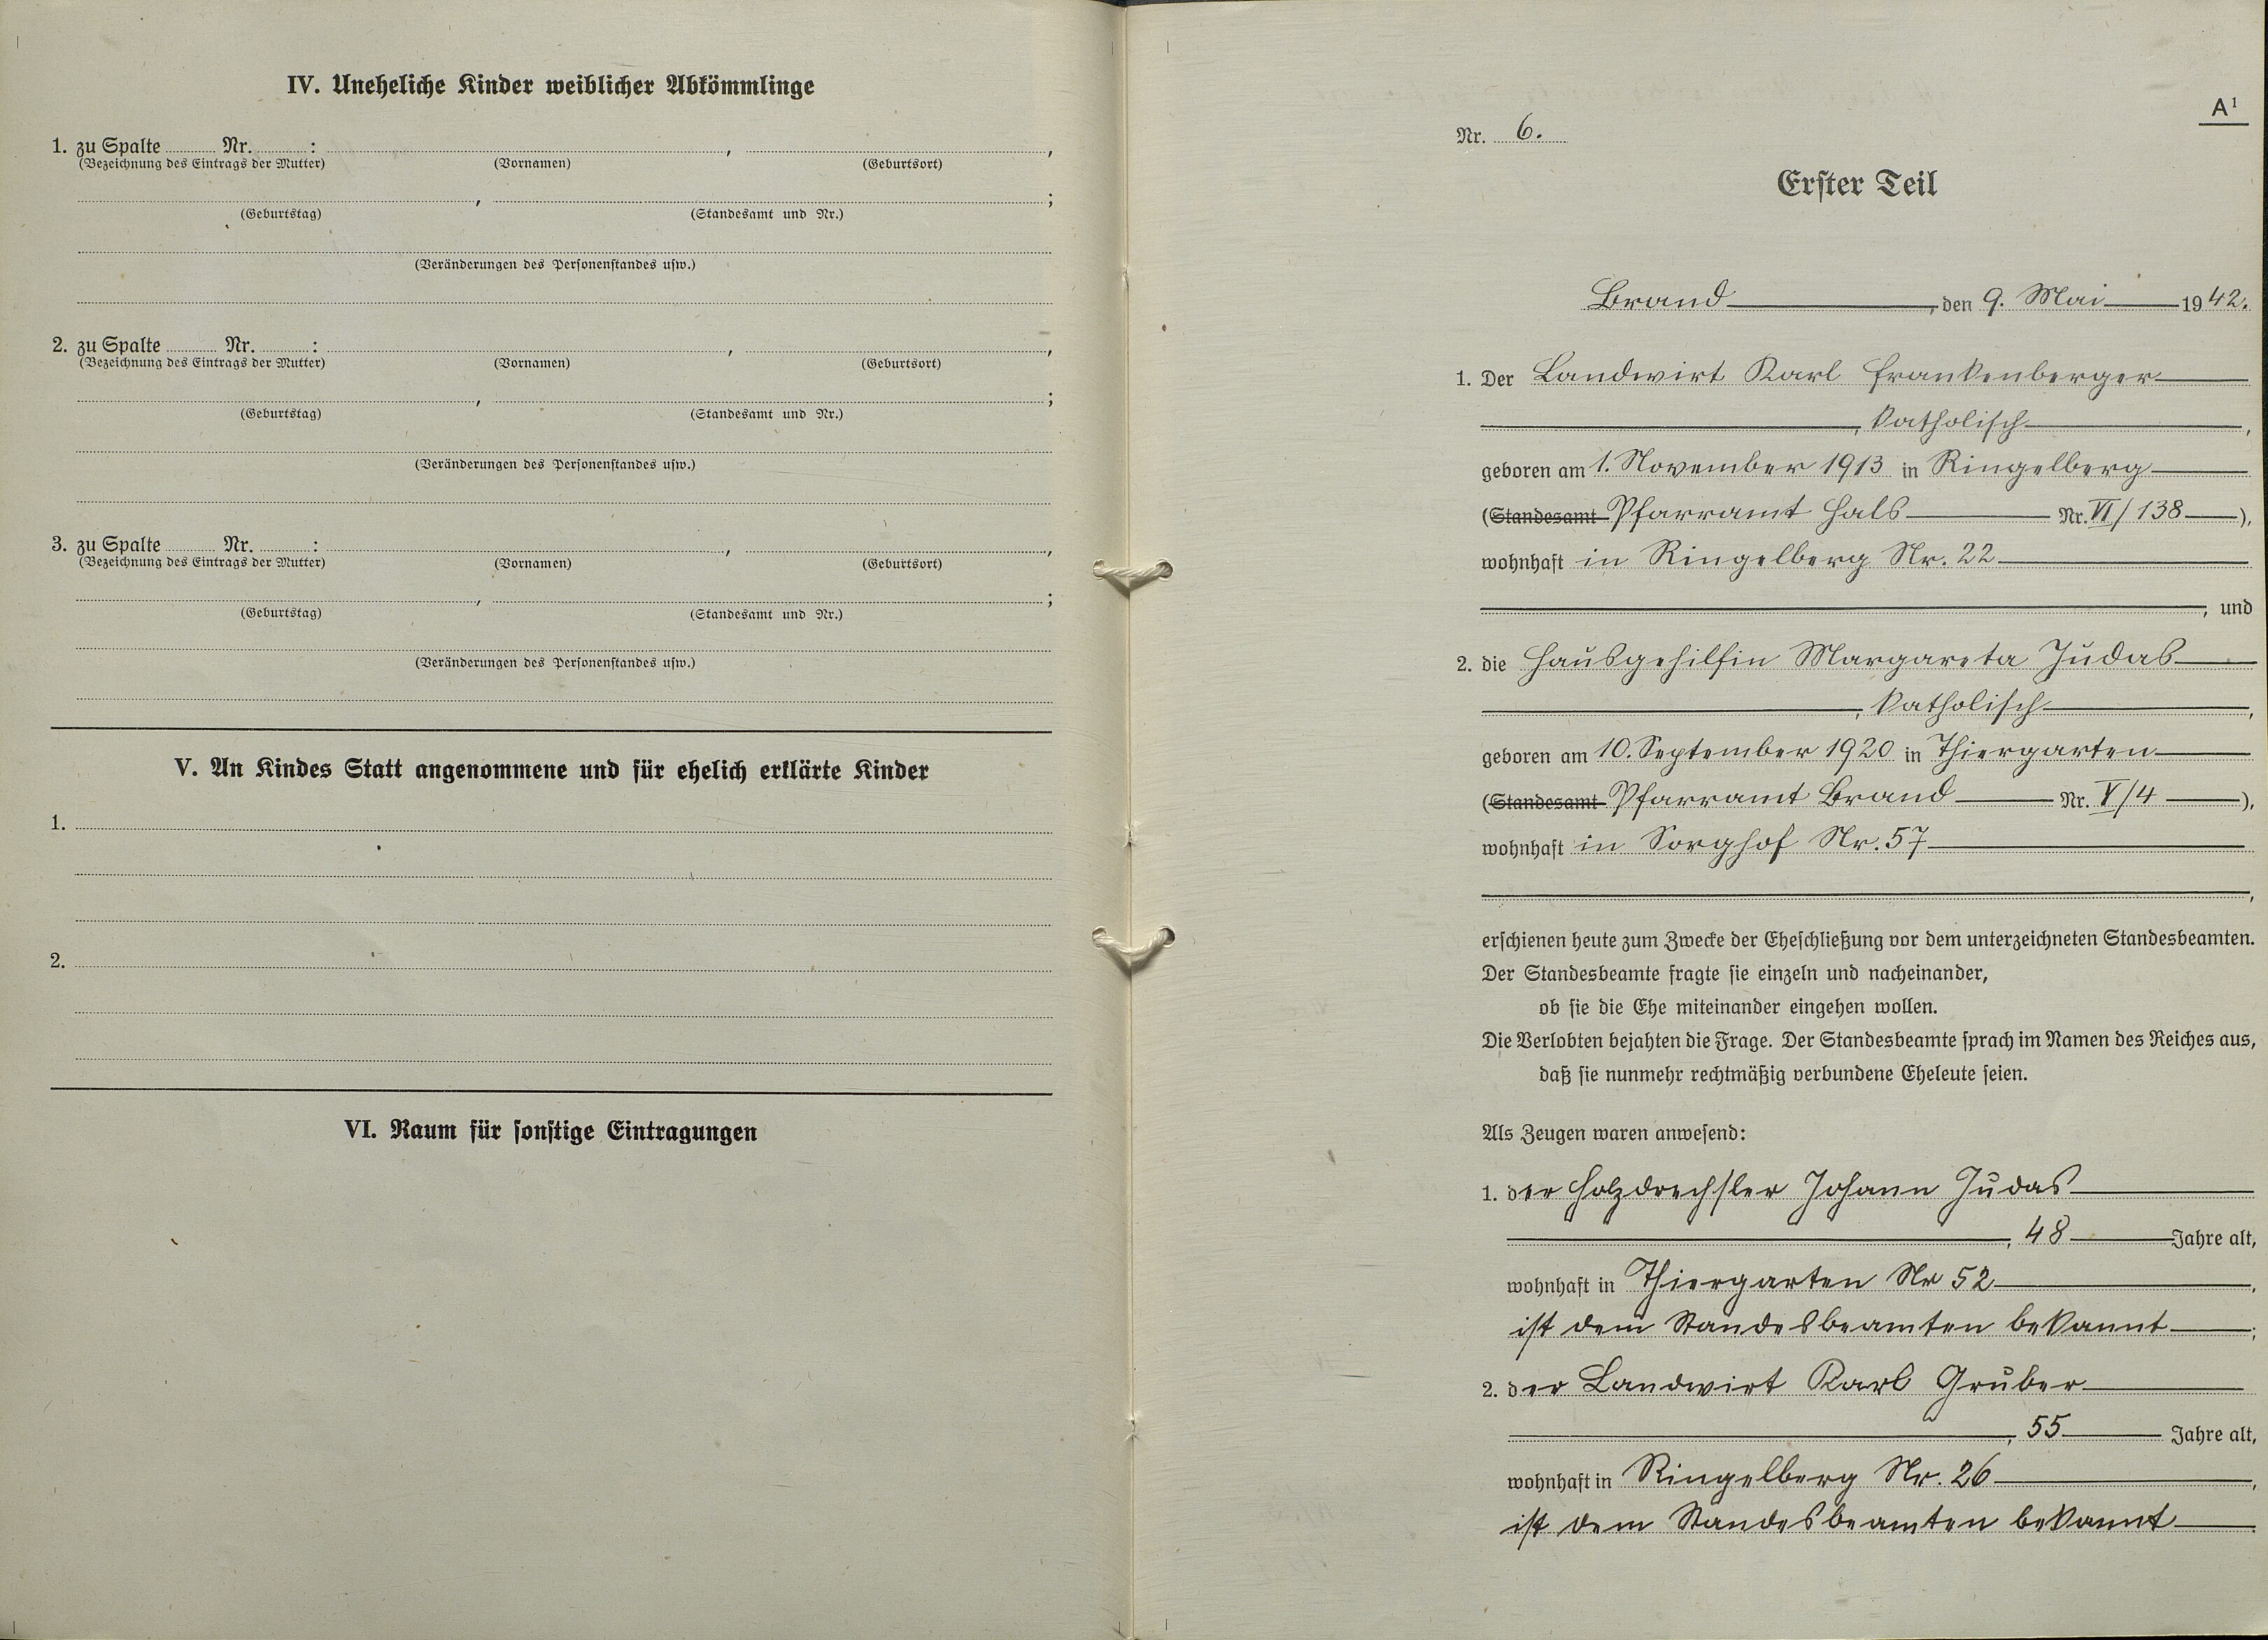 IV. Uneheliche Kinder weiblicher Abkömmlinge
1. zu Spalte Nr. : , ,
(Bezeichnung des Eintrags der Mutter) (Vornamen) (Geburtsort)
, ;
(Geburtstag) (Standesamt und Nr.)
(Veränderungen des Personenstandes usw.)
2. zu Spalte Nr. : , ,
(Bezeichnung des Eintrags der Mutter) (Vornamen) (Geburtsort)
, ;
(Geburtstag) (Standesamt und Nr.)
(Veränderungen des Personenstandes usw.)
3. zu Spalte Nr. : , ,
(Bezeichnung des Eintrags der Mutter) (Vornamen) (Geburtsort)
, ;
(Geburtstag) (Standesamt und Nr.)
(Veränderungen des Personenstandes usw.)
V. An Kindes Statt angenommene und für ehelich erklärte Kinder
1.
2.
VI. Raum für sonstige Eintragungen
A¹
Nr. 6.
Erster Teil
Brand, den 9. Mai 1942.
1. Der Landwirt Karl Frankenberger
, katholisch,
geboren am 1. November 1913 in Ringelberg
(Standesamt Pfarramt Hals Nr. VI/138),
wohnhaft in Ringelberg Nr. 22
, und
2. die Hausgehilfin Margareta Judas
, katholisch,
geboren am 10. September 1920 in Thiergarten
(Standesamt Pfarramt Brand Nr. V/4),
wohnhaft in Sorghof Nr. 57
,
erschienen heute zum Zwecke der Eheschließung vor dem unterzeichneten Standesbeamten.
Der Standesbeamte fragte sie einzeln und nacheinander,
ob sie die Ehe miteinander eingehen wollen.
Die Verlobten bejahten die Frage. Der Standesbeamte sprach im Namen des Reiches aus,
daß sie nunmehr rechtmäßig verbundene Eheleute seien.
Als Zeugen waren anwesend:
1. der Holzdrechsler Johann Judas
, 48 Jahre alt,
wohnhaft in Thiergarten Nr 52,
ist dem Standesbeamten bekannt;
2. der Landwirt Karl Gruber
, 55 Jahre alt,
wohnhaft in Ringelberg Nr. 26,
ist dem Standesbeamten bekannt.